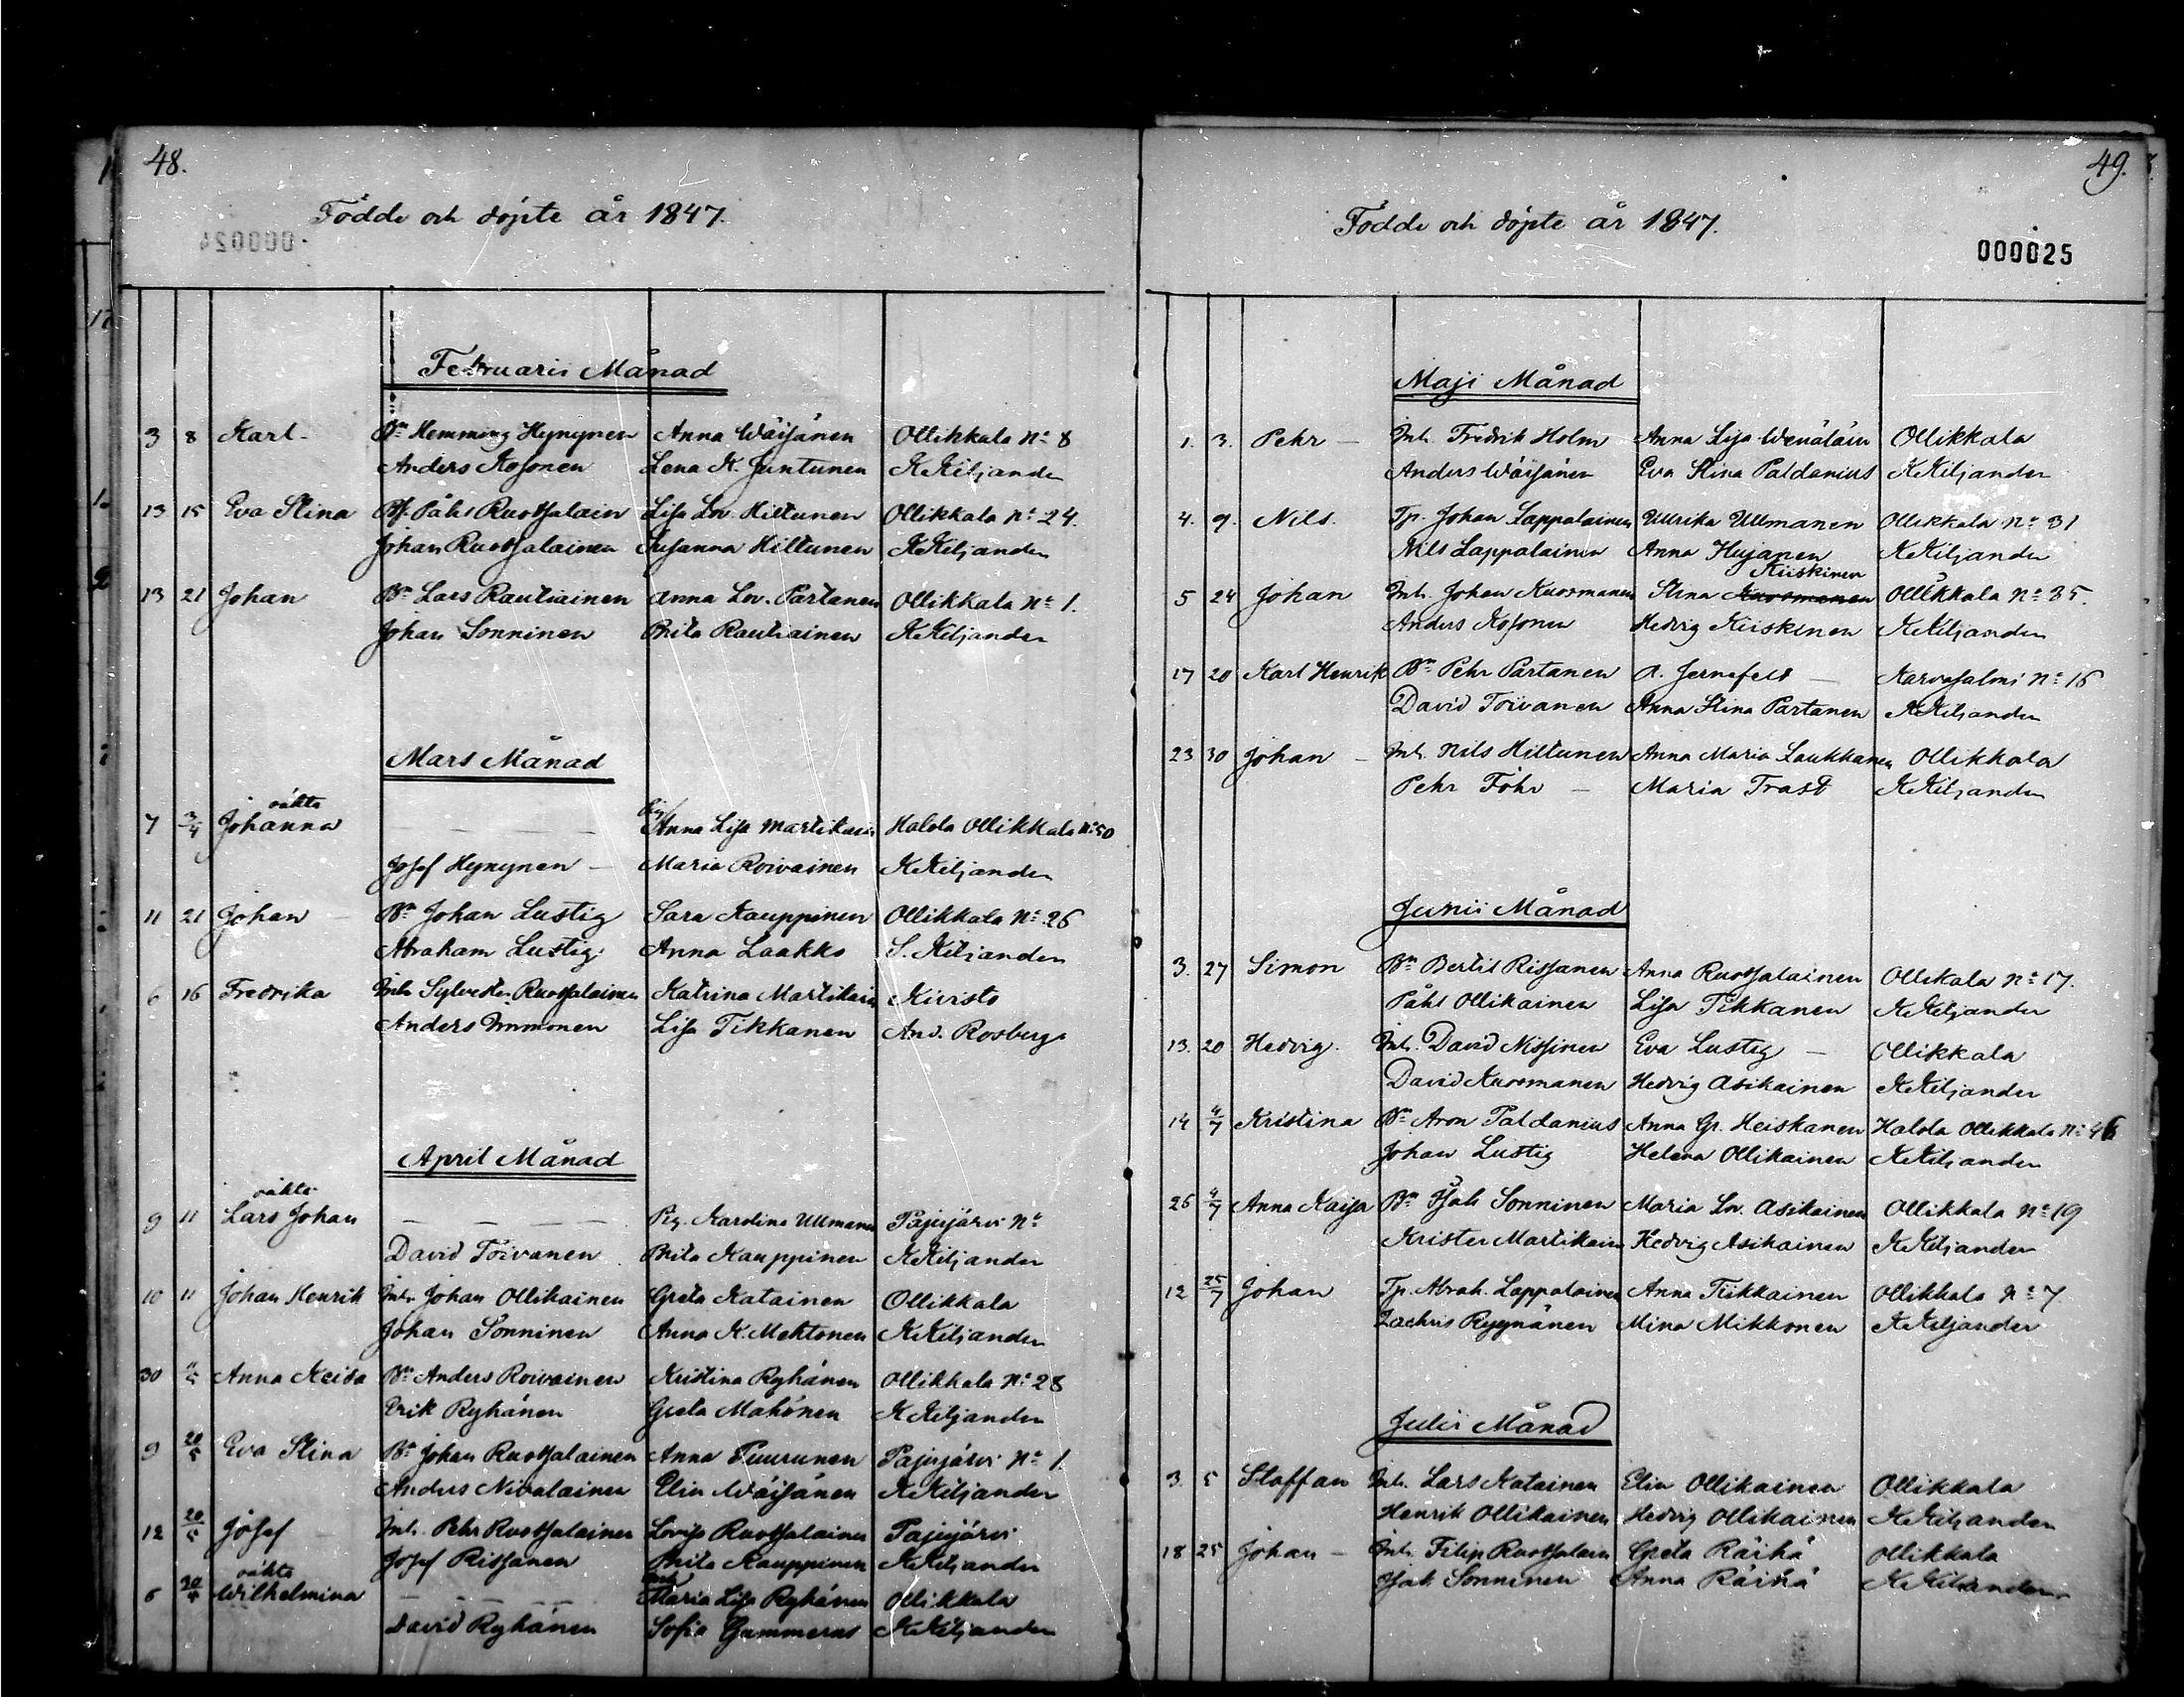 48.
Födde och döpte år 1847.
Februarii Månad
3 8 Karl - Bn Hemming Hynynen Anna Wäisänen Ollikkala No 8
Anders Kosonen Lena K. Juntunen K Kiljander
13 15 Eva Stina Påhl Ruotsalain Lisa Lov. Hiltunen Ollikkala No 24.
Johan Ruotsalainen Susanna Hiltunen K Kiljander
13 21 Johan Bn Lars Rautiainen Anna Lov. Partanen Ollikkala No 1.
Johan Sonninen Brita Rautiainen K Kiljander
Mars Månad
oäkta
7 3/4 Johanna — — — Anna Lisa Martikain Halola Ollikkala No 50
Josef Hynynen — Maria Roivainen K Kiljander
11 21 Johan — Bn Johan Lustig Sara Kauppinen Ollikkala No 26
Abraham Lustig Anna Laakko S. Kiljander
6 16 Fredrika Inh. Sylvester Ruotsalainen Katrina Martikain Kivisto
Anders Immonen Lisa Tikkanen And. Rosberg
April Månad
oäkta
9 11 Lars Johan — — — — Pig. Karolina Ullmanen Pajujärvi No
David Toivanen Brita Kauppinen K Kiljander
10 11 Johan Henrik Inh. Johan Ollikainen Greta Katainen Ollikkala
Johan Sonninen Anna K. Mehtonen K Kiljander
30 Anna Keisa Bn Anders Roivainen Kristina Ryhänen Ollikkala No 28
Erik Ryhänen Greta Mahönen K Kiljander
9 20/5 Eva Stina Bn Johan Ruotsalainen Anna Tuurunen Pajujärvi No 1.
Anders Nivalainen Elin Wäisänen K Kiljander
12 20/5 Josef — Inh. Pehr Ruotsalainen Lovisa Ruotsalainen Pajujärvi
Josef Rissanen Brita Kauppinen K Kiljander
oäkta
6 Wilhelmina — — — — Maria Lisa Ryhänen Ollikkala
David Ryhänen Sofia Gummerus K Kiljander
49.
Födde och döpte år 1847.
000025
Maji Månad
1. 3. Pehr — Inh. Fredrik Holm Anna Lisa Wenäläin Ollikkala
Anders Wäisänen Eva Stina Paldanius K Kiljander
4. 9. Nils. Tp. Johan Lappalainen Ullrika Ullmanen Ollikkala No 31
Nils Lappalainen Anna Hujanen K Kiljander
Kiiskinen
5 24 Johan Inh. Johan Kuosmanen Stina Kuosmanen Ollikkala No 35.
Anders Kosonen Hedvig Kiiskinen K Kiljander
17 20 Karl Henrik Bn Pehr Partanen A. Jernefelt — Karvasalmi No 16
David Toivanen Anna Stina Partanen K Kiljander
23 30 Johan — Inh. Nils Hiltunen Anna Maria Laukkanen Ollikkala
Pehr Föhr — Maria Trast K Kiljander
Junii Månad
3. 27 Simon Bn Bertil Rissanen Anna Ruotsalainen Ollikala No 17.
Påhl Ollikainen Lisa Tikkanen K Kiljander
13. 20 Hedvig. Inh. David Nissinen Eva Lustig — Ollikkala
David Kuosmanen Hedvig Asikainen K Kiljander
14 4/7 Kristina Bn Aron Paldanius Anna Gr. Heiskanen Halola Ollikkala No 46
Johan Lustig Helena Ollikainen K Kiljander
26 4/7 Anna Kaisa Bn Isak Sonninen Maria Lov. Asikainen Ollikkala No 19
Krister Martikain Hedvig Asikainen K Kiljander
12 25/7 Johan Tp. Abrah. Lappalainen Anna Tiikkainen Ollikkala No 7.
Zachris Ryynänen Mina Mikkonen K Kiljander
Julii Månad
3. 5 Staffan Inh. Lars Katainen Elin Ollikainen Ollikkala
Henrik Ollikainen Hedvig Ollikainen K Kiljander
18 25 Johan — Inh. Filip Ruotsalain Greta Räihä Ollikkala
Isak Sonninen Anna Räihä K Kiljander